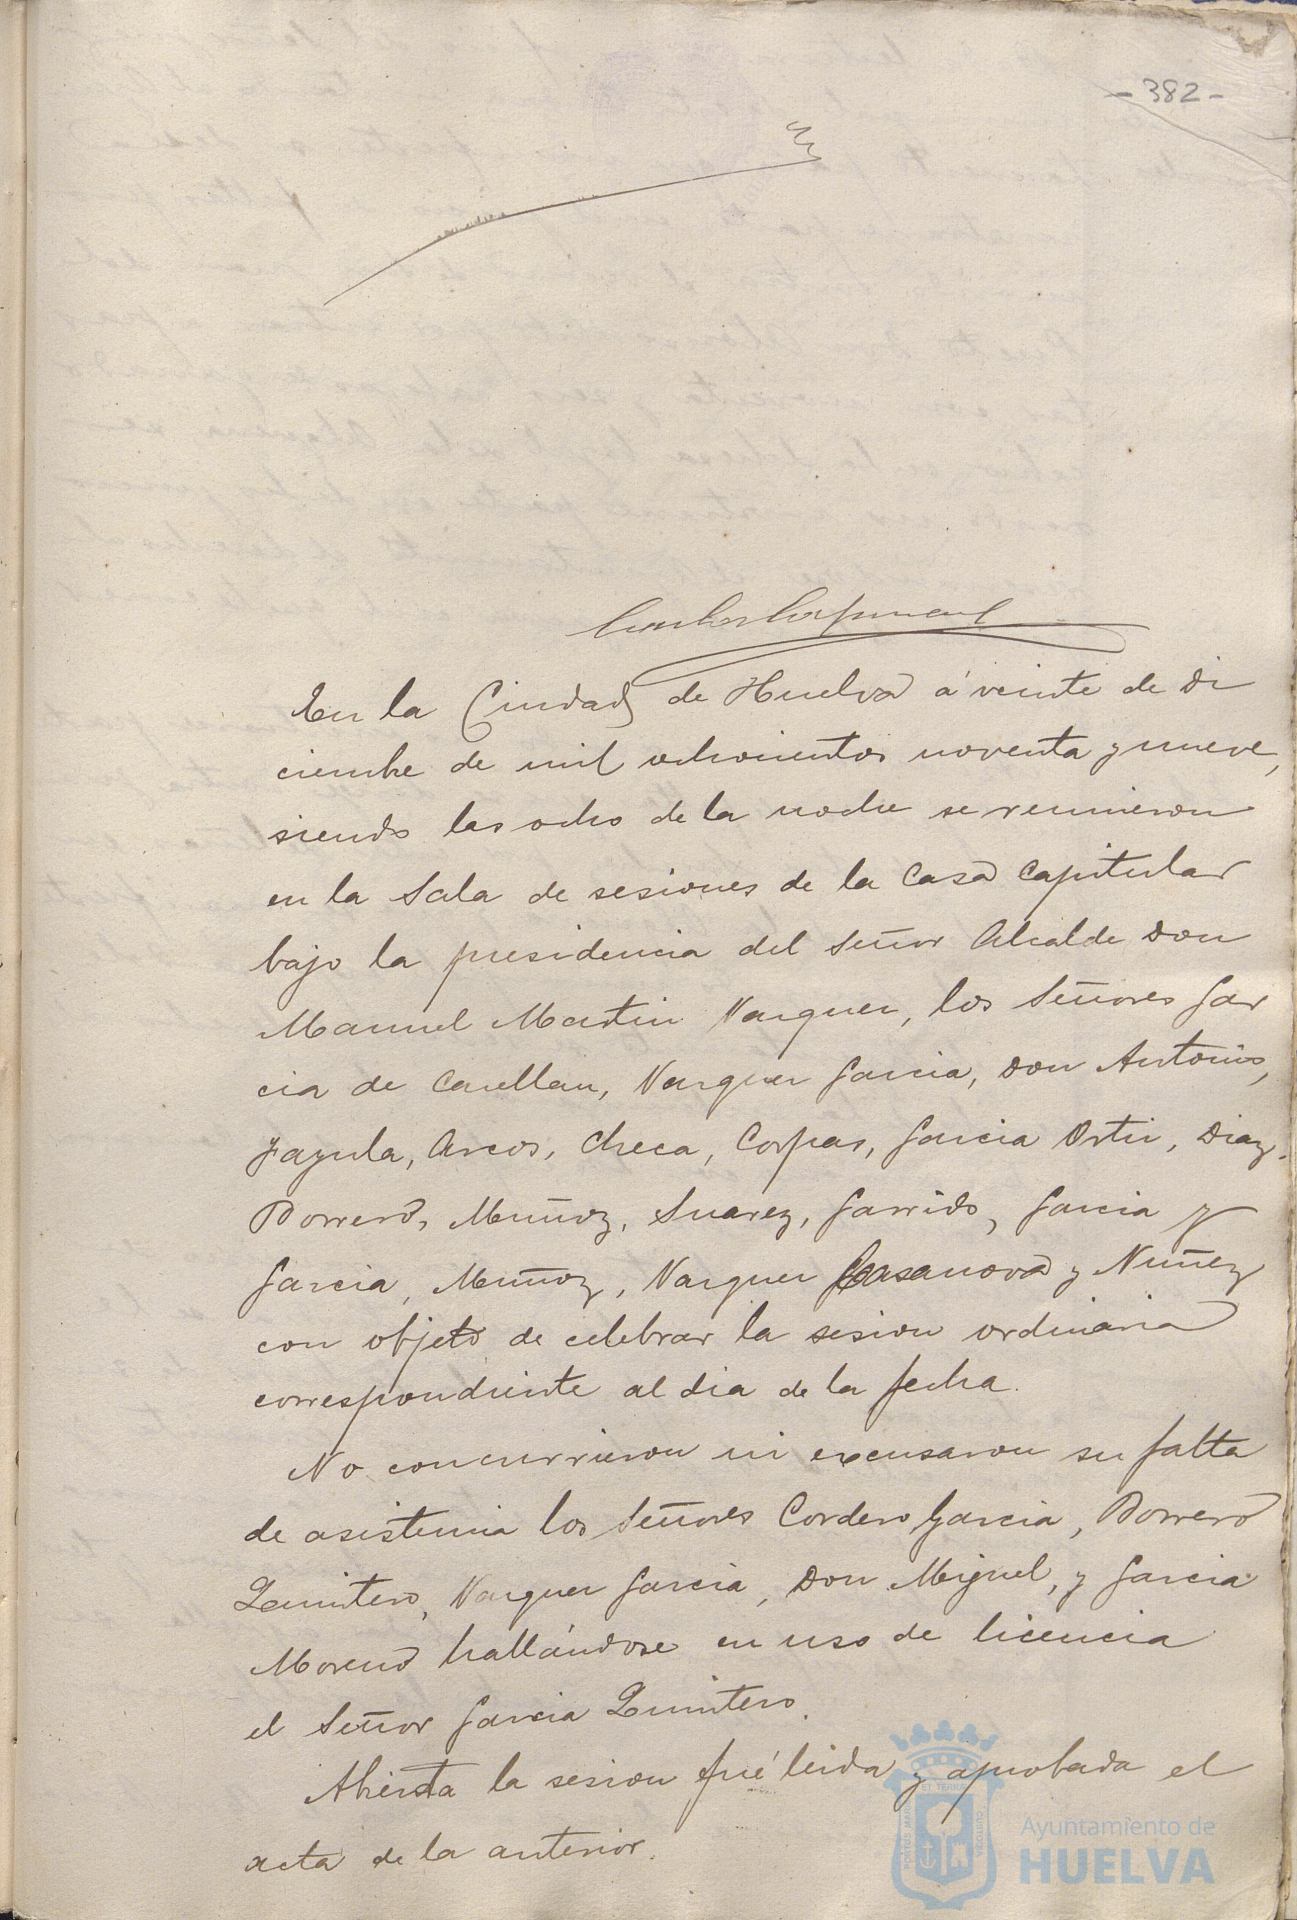 - 382 -
En la Ciudad de Huelva á veinte de Di
ciembre de mil ochocientos noventa y nueve,
siendo las ocho de la noche se reunieron
en la Sala de sesiones de la Casa Capitular
bajo la presidencia del Señor Alcalde Don
Manuel Martin Vazquez, los Señores Gar
cia de Casellan, Vazquez Garcia, Don Antonio,
Arcos, Checa, Corpas, Garcia Ortiz, Diaz,
Borrero, Muñoz, Suarez, Garrido, Garcia y
Garcia, Muñoz, Vazquez Casanova y Nuñez
con objeto de celebrar la sesion ordinaria
correspondiente al dia de la fecha.
No concurrieron ni excusaron su falta
de asistencia los Señores Cordero Garcia, Borrero
Quintero, Vazquez Garcia, Don Miguel, y Garcia
Moreno hallándose en uso de licencia
el Señor Garcia Quintero.
Abierta la sesion fué leida y aprobada el
acta de la anterior.
Ayuntamiento de
HUELVA